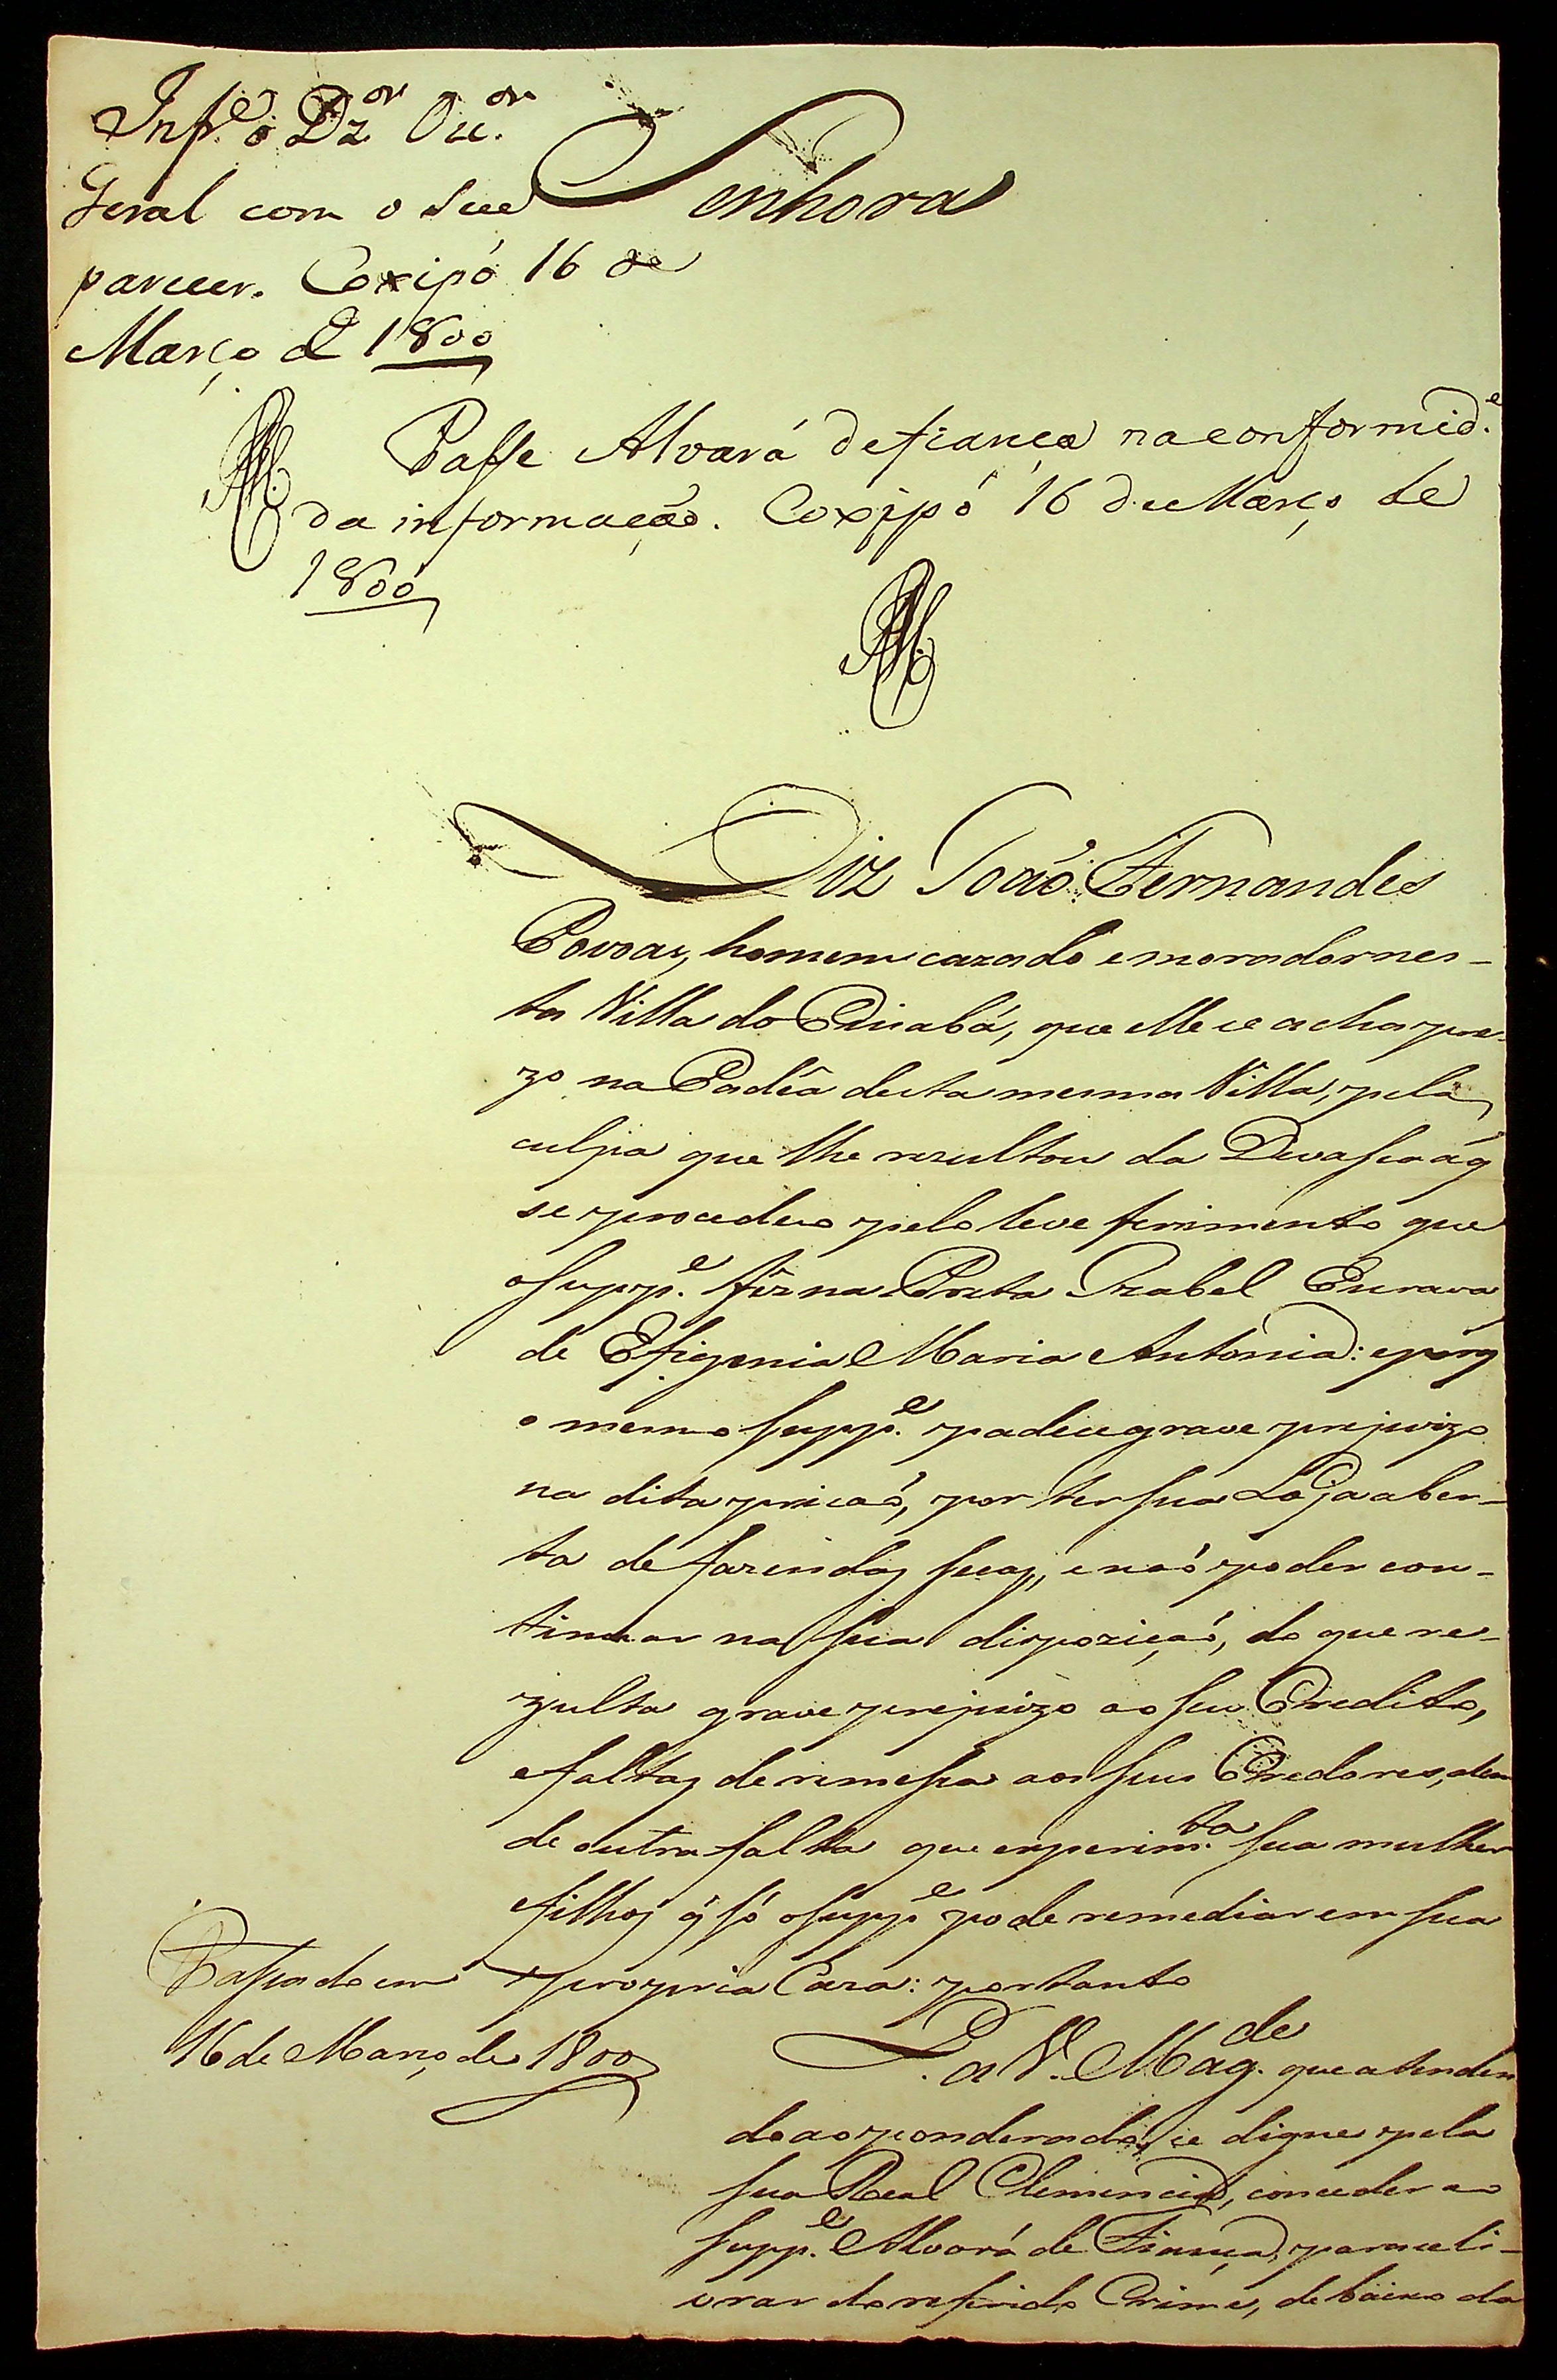 Inf.e o Dz.or Ou.or
Geral com o seu
parecer. Coxipó 16 de
Março de 1800
Senhora
Passe Alvará de fiança na conformid.e
da informação. Coxipó 16 de Março de
1800
Diz João Fernandes
Povoas, homem cazado e morador nes-
ta Villa do Cuiabá, que elle se acha pre-
zo na Cadêa desta mesma Villa, pela
culpa que lhe rezultou da Devassa a q̃
se procedeo pelo leve ferimento que
o supp.e fêz na Preta Izabel Escrava
de Efigenia Maria Antonia: e porq̃
o mesmo supp.e padece grave prejuizo
na dita prizaõ, por ter sua Loja aber-
ta de fazendas secas, e naõ poder con-
tinuar na sua dispoziçaõ, do que re-
zulta grave prejuizo ao seu Credito,
e faltas de remessa aos seus Credores, alem
de outra falta que experim.ta sua mulher
e filhos q̃ só o supp.e pode remediar em sua
propria Caza: portanto
Passado em
16 de Março de 1800
P. a V. Mag.de que atenden
do ao ponderado, se digne pela
sua Real Clemencia, conceder ao
supp.e Alvará de Fiança, para se li-
vrar do referido Crime, debaixo da